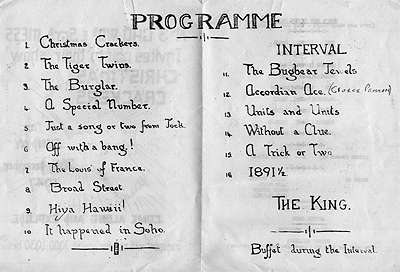 PROGRAMME
1. Christmas Crackers.
2. The Tiger Twins.
3. The Burglar.
4. A Special Number.
5. Just a song or two from Jock.
6. Off with a bang!
7. The Louis' of France.
8. Broad Street
9. Hiya Hawaii!
10. It happened in Soho.
INTERVAL
11. The Bugbear Jewels
12. Accordian Ace. (George
13. Units and Units
14. Without a Clue.
15. A Trick or Two
16. 1891½
THE KING.
Buffet during the Interval.